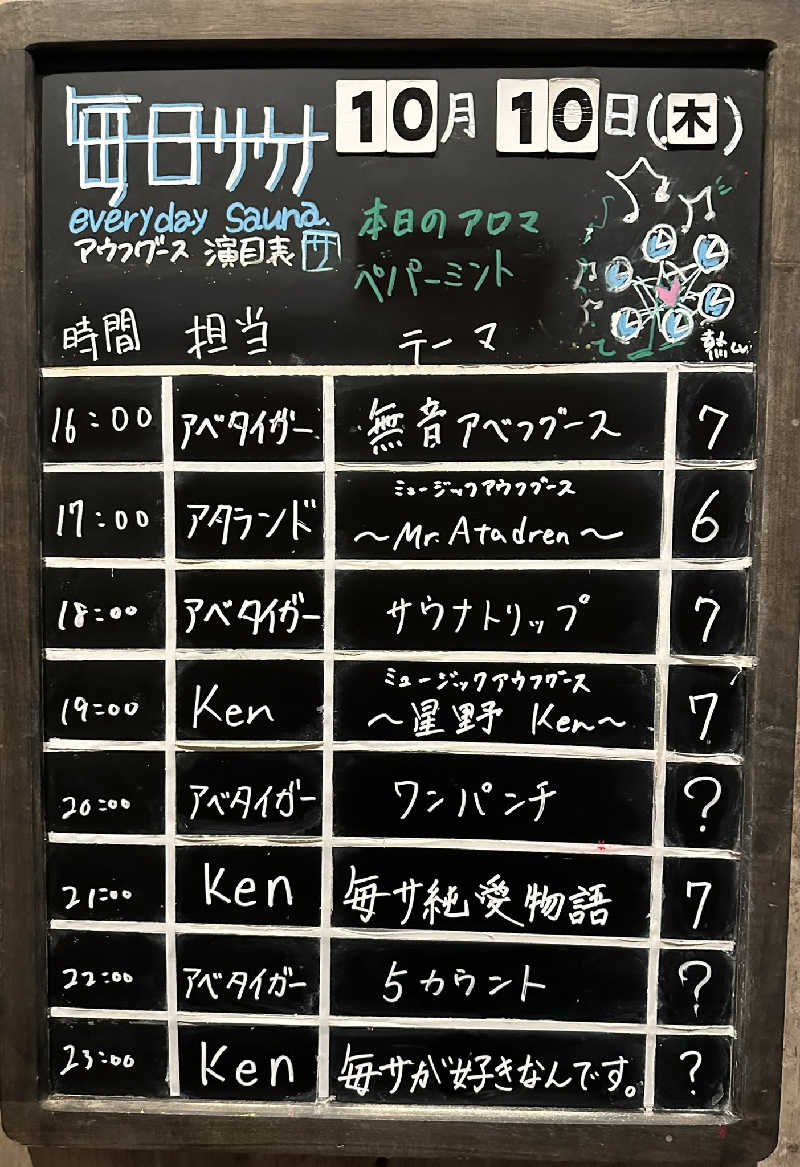 毎日サウナ 10月10日(木)
everyday Sauna.
アウフグース 演目表 サ
本日のアロマ
ペパーミント
時間 担当 テーマ 熱い
16:00 アベタイガー 無音アベフグース 7
17:00 アタランド ミュージックアウフグース
〜Mr.Atadren〜 6
18:00 アベタイガー サウナトリップ 7
19:00 Ken ミュージックアウフグース
〜星野 Ken〜 7
20:00 アベタイガー ワンパンチ ?
21:00 Ken 毎サ純愛物語 7
22:00 アベタイガー 5カウント ?
23:00 Ken 毎サが好きなんです。 ?